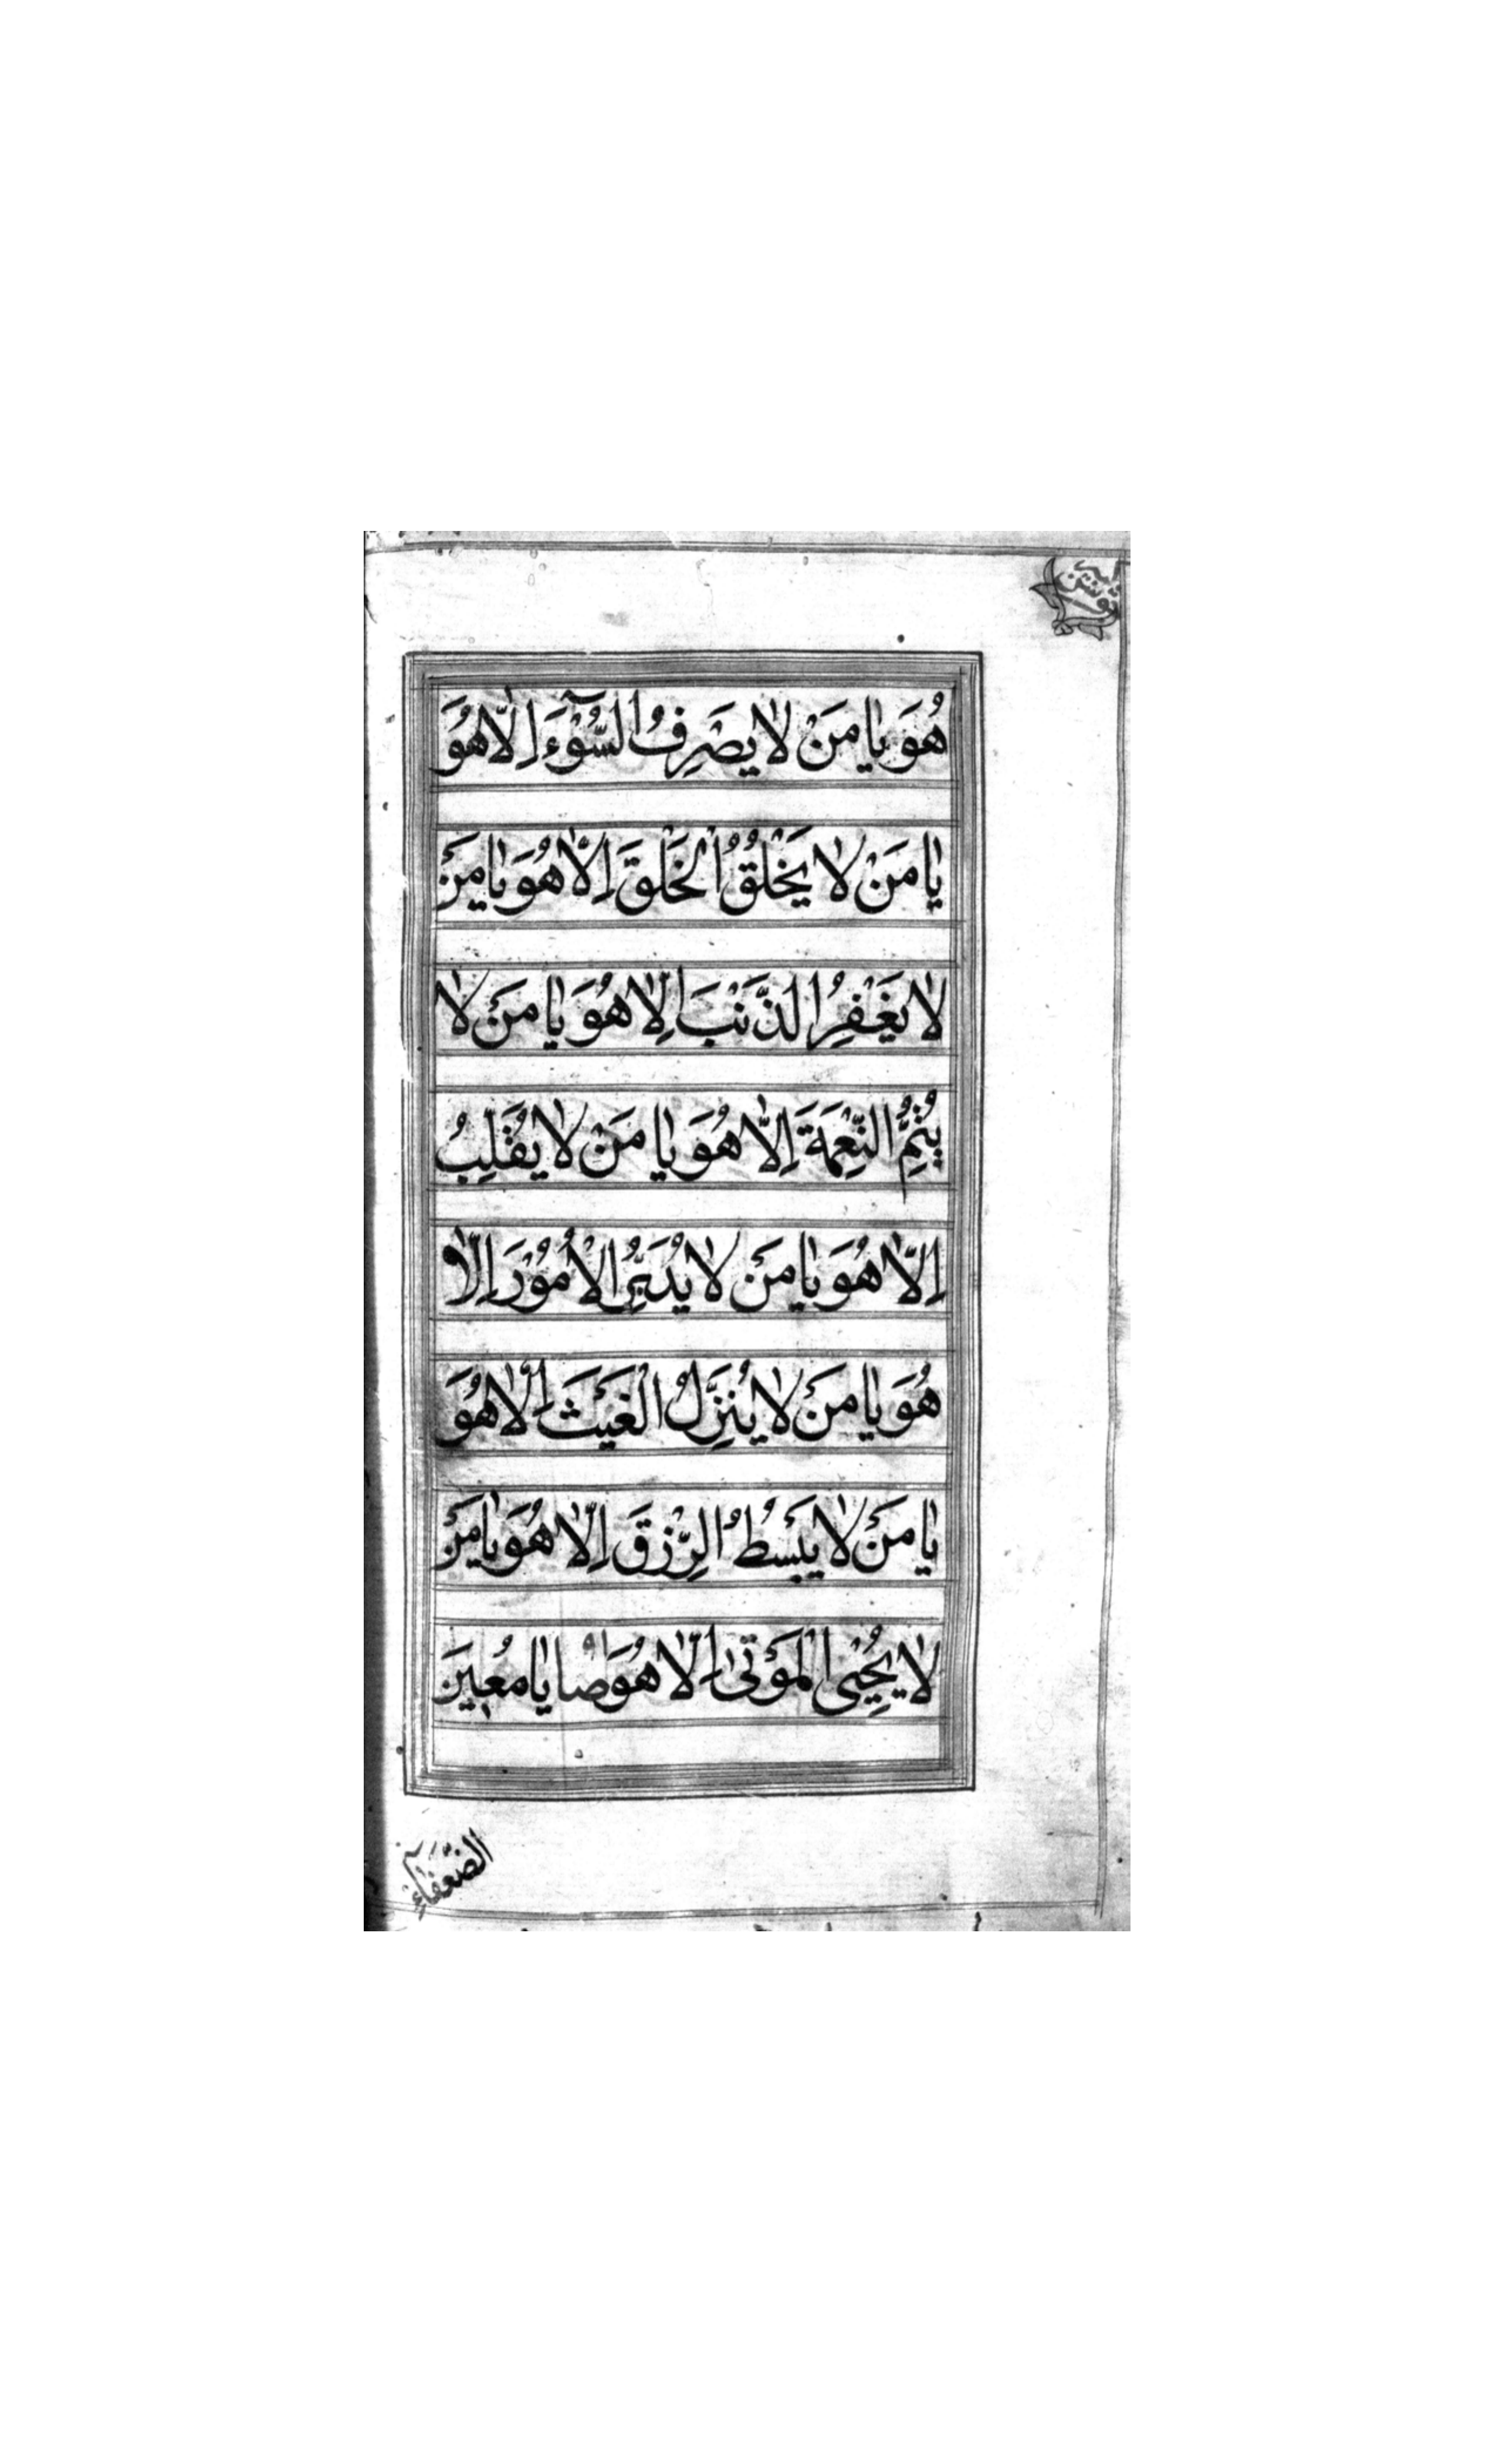 هُوَ يا مَنْ لا يَصْرِفُ السُّوۤءَ اِلّا هُوَ
يا مَنْ لا يَخْلُقُ الْخَلْقَ اِلّا هُوَ يا مَنْ
لا يَغْفِرُ الذَّنْبَ اِلّا هُوَ يا مَنْ لا
يُتِمُّ النِّعْمَةَ اِلّا هُوَ يا مَنْ لا يُقَلِّبُ
اِلّا هُوَ يا مَنْ لا يُدَبِّرُ الْاُمُوْرَ اِلّا
هُوَ يا مَنْ لا يُنَزِّلُ الْغَيْثَ اِلّا هُوَ
يا مَنْ لا يَبْسُطُ الرِّزْقَ اِلّا هُوَ يا مَنْ
لا يُحْيِي الْمَوْتىٰ اِلّا هُوَ صا يا مُعِينَ
الضُّعَفآءِ